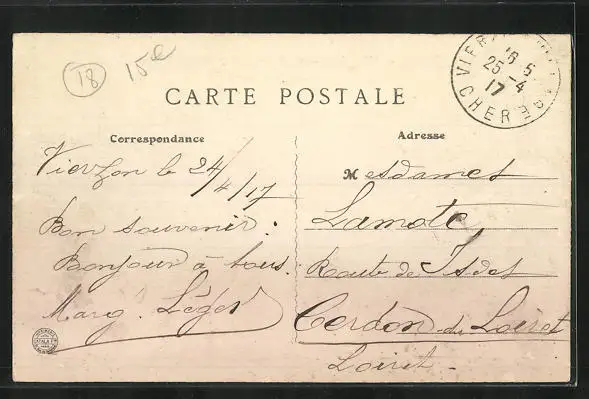 18
15e
CARTE POSTALE
Correspondance
Vierzon le 24/4/17
Bon souvenir.
Bonjour à tous.
Marg. Léger
Adresse
Mesdames
Lamote
Route de Isdes
Cerdon du Loiret
Loiret
VIERZON
16 5
25 -4
17
CHER